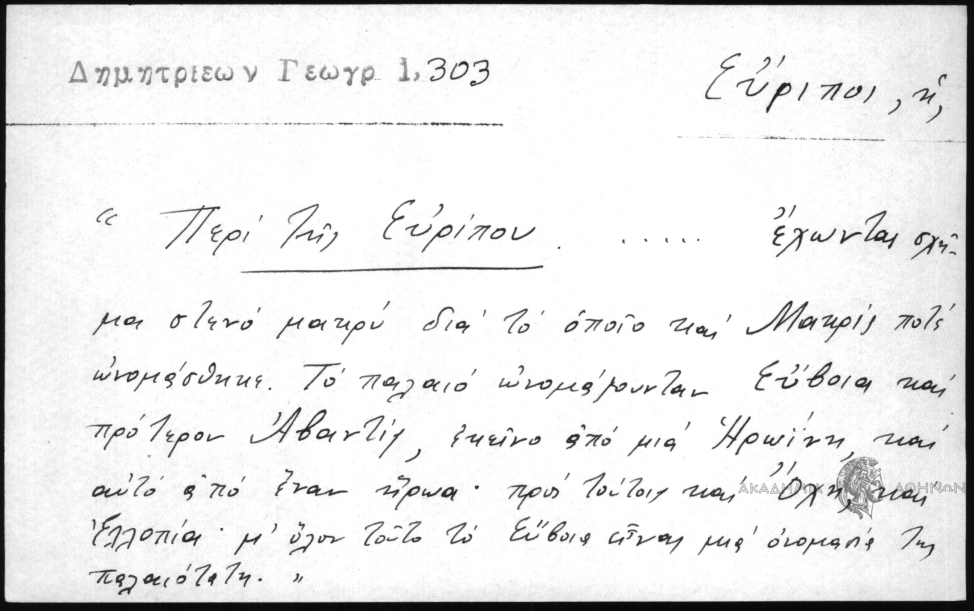 Δημητριεων Γεωγρ 1, 303
Εὔριποι, ἡ,
“ Περί τῆς Εὐρίπου . . . . . . ἔχωντας σχῆ-
μα στενό μακρύ διά τό ὁποῖο καί Μακρίς ποτέ
ὠνομάσθηκε. Τό παλαιό ὠνομάζουνταν Εὔβοια καί
πρότερον Ἀβαντίς, ἐκεῖνο ἀπό μιά Ἡρωίνη, καί
αὐτό ἀπό ἕναν ἥρωα· πρός τούτοις καί Ὄχη, καί
Ἐλλοπία· μ' ὅλον τοῦτο τό Εὔβοια εἶναι μιά ὀνομασία της
παλαιότατη. ”
ΑΚΑΔΗΜΙΑ ΑΘΗΝΩΝ